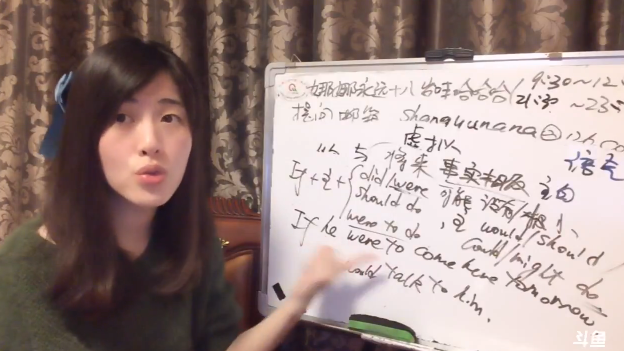 娜娜永远十八岁哇哈哈哈 9:30~12
21:30~23
提问邮箱 shangyunana@126.co
虚拟 语气
与将来事实相反 主句
If+主+ did/were 可能没有/很小
should do ,主would/should
were to do could/might do
If he were to come here tomorrow
would talk to him.
斗鱼